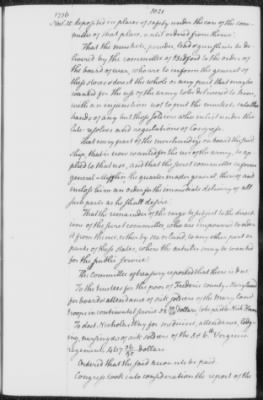 1776 1021
Nov. 25 deposited in places of safety under the care of the com-
mittee of that place, until ordered from thence:
That the muskets, powder, lead & gun flints be de-
livered by the committee of Bedford to the order of
the board of war, who are to inform the general of
these stores & direct the whole or any part that may be
wanted for the use of the army to be delivered to him,
with an injunction not to put the muskets into the
hands of any but those soldiers who enlist under the
late resolves and regulations of Congress.
That every part of the merchandize on board the said
ship, that is now wanted for the use of the army, be ap-
plied to that use, and that the secret committee inform
general of the quarter master general thereof, and
inclose him an order for the immediate delivery of all
such parts as he shall desire:
That the remainder of the cargo be subject to the direct-
ion of the secret committee, who are impowered to convey
it from thence, either by sea or land, to any other part or
parts of these states, where the articles may be wanted
for the public service.
The committee of treasury reported that there is due
To the trustees for the poor of Frederic county, Maryland
for board & attendance of sick soldiers of the Maryland
troops in continental service, dollars, to be paid to
To doct. Nicholas Way for medicines, attendance, lodg-
ing, nursing &c of sick soldiers of the 3 & 6th Virginia
regiments, 467 dollars
Ordered that the said accounts be paid.
Congress took into consideration the report of the